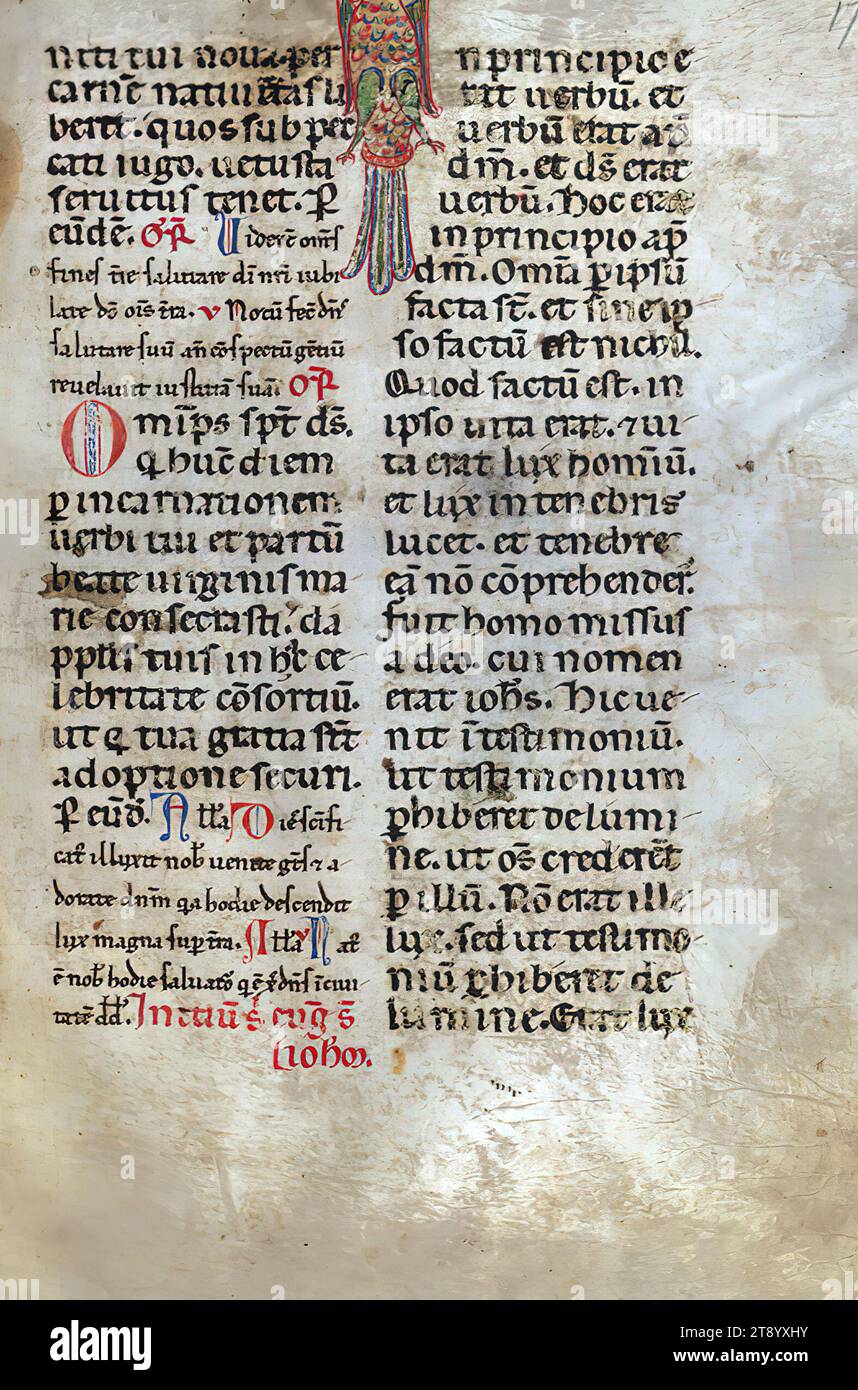 niti tui noua. per
carnē natiuitas li
beret. quos sub pec
cati iugo. uetusta
seruitus tenet. P̱
eūdē. GR̄ Viderē om̄s
fines tr̄e salutare dī nr̄i iubi
late dō ois tr̄a. v Notū fec̄ dn̄s
salutare suū an̄ cōspectū gētiū
reuelauit iustitiā suā. OR̄
Om̄ps sp̄t ds̄.
q̄ hūc diem
p̱ incarnationem
uerbi tui et partū
beate uirginis ma
rie consecrasti. da
pp̄lis tuis in hac ce
lebritate cōsortiū.
ut q̄ tua gratia st̄
adoptione securi.
P̱ eūd. All̄a Diēs sc̄ifi
cat᷒ illuxit nob̄ uenite gēs ⁊ a
dorate dn̄m q̄a hodie descendit
lux magna sup̱ tr̄a. All̄a v Nat᷒
ē nob̄ hodie saluator̄ q̄ ē xp̄s dn̄s ī ciui
tate dd̄. Initiū s̄ euḡ s̄
Ioh̄m.
n principio e
rat uerbū. et
uerbū erat ap̄
dm̄. et ds̄ erat
uerbū. Hoc erat
in principio ap̄
dm̄. Omīa p̱ ipsū
facta st̄. et sine ip
so factū est nichil.
Quod factū est. in
ipso uita erat. ⁊ ui
ta erat lux hominū.
et lux in tenebris
lucet. et tenebre
eā nō cōprehender̄.
fuit homo missus
a deo. cui nomen
erat ioh̄s. Hic ue
nit ī testimoniū.
ut testimonium
p̱hiberet de lumi
ne. ut om̄s crederēt
p̱ illū. Nō erat ille
lux. sed ut testimo
niū p̱hiberet de
lumine. Erat lux
17
alamy
Image ID: 2T8YXHY
www.alamy.com